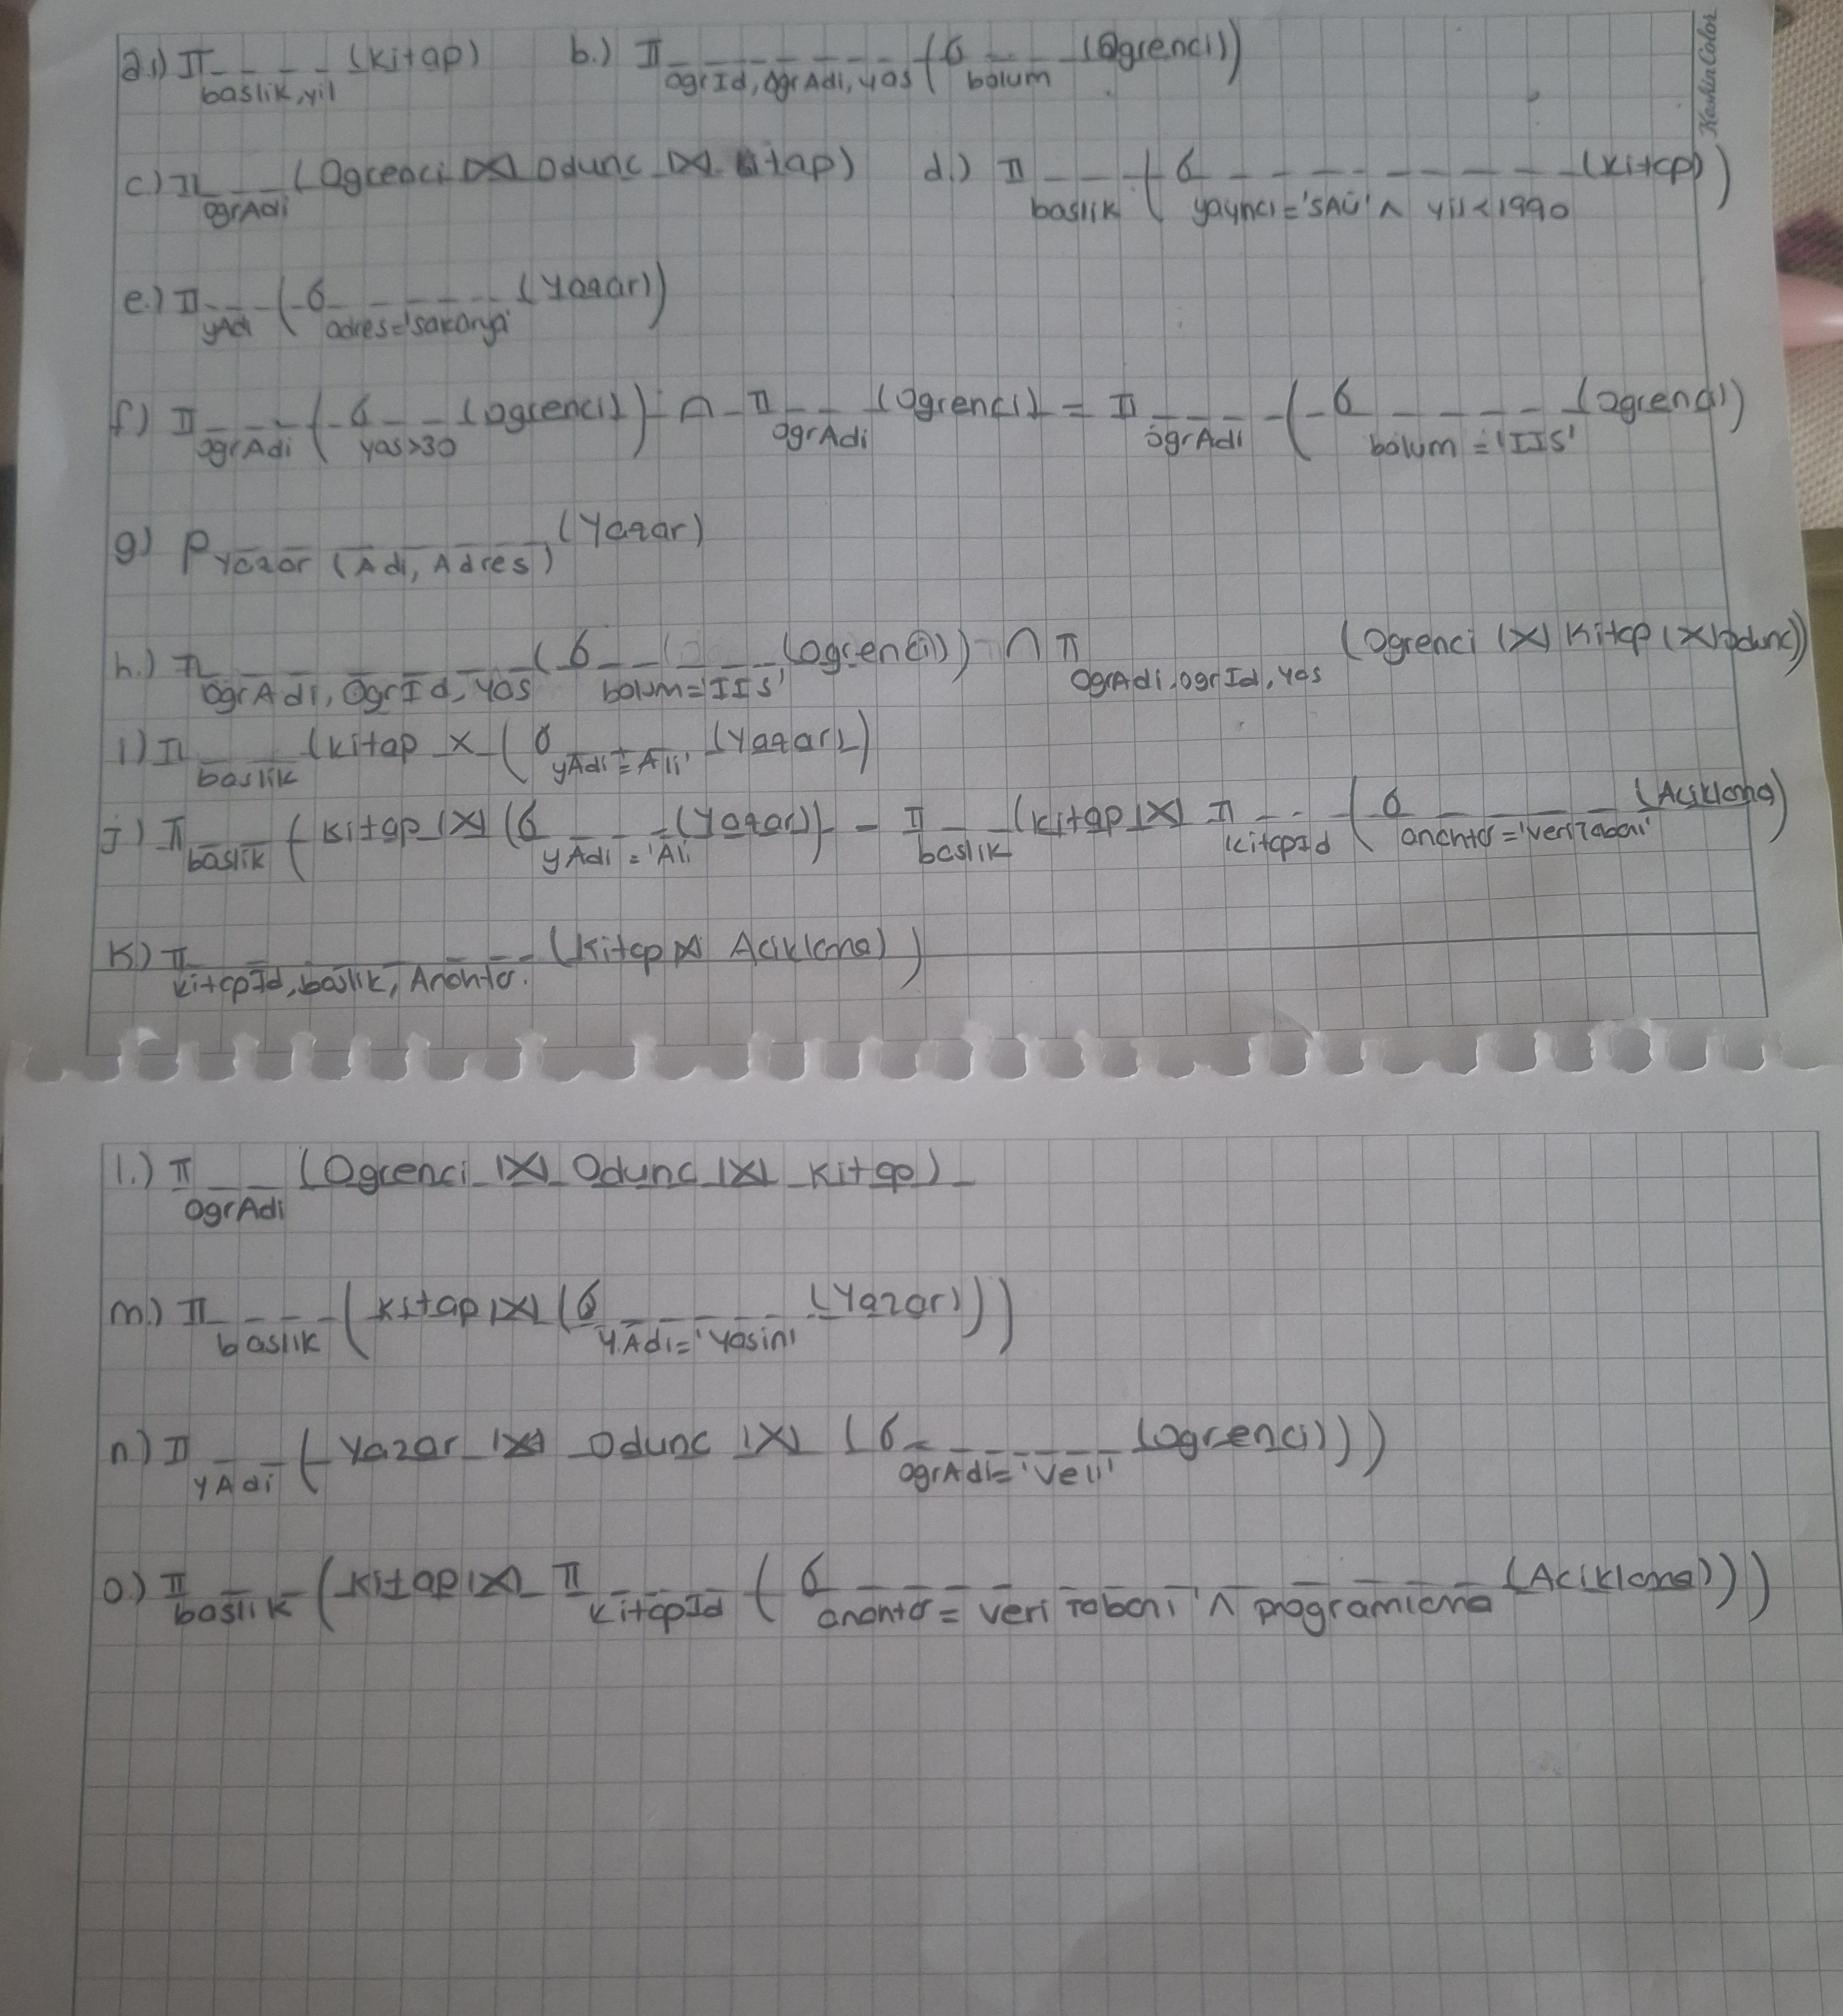 a.) π baslik, yil (kitap) b.) π ogrId, ogrAdi, yas (σ bolum (Ogrenci))
KeskinColor
c) π ogrAdi (Ogrenci ⋈ Odunc ⋈ kitap) d.) π baslik (σ yayncı='SAÜ' ∧ yil<1990 (kitap))
e.) π yAdi (σ adres='sakarya' (Yazar))
f) π ogrAdi (σ yas>30 (ogrenci)) ∩ π ogrAdi (Ogrenci) = π ogrAdi (σ bolum='IIS' (ogrenci))
g) ρ Yazar (Adi, Adres) (Yazar)
h.) π OgrAdi, OgrId, yas (σ bolum='IIS' (ogrenci)) ∩ π OgrAdi, ogrId, yas (Ogrenci |X| Kitap |X| odunc))
i) π baslik (kitap x (σ yAdi='Ali' (Yazar))
j) π baslik (kitap |X| (σ yAdi='Ali (Yazar)) - π baslik (kitap |X| π kitapId (σ anahtar='veriTabani' (Aciklama)
k.) π kitapId, baslik, Anahtar. (Kitap ⋈ Aciklama))
l.) π OgrAdi (Ogrenci |X| Odunc |X| Kitap)
m.) π baslik (kitap |X| (σ yAdi='Yasin' (Yazar)))
n.) π yAdi (Yazar |X| Odunc |X| (σ ogrAdi='veli' (ogrenci)))
o.) π baslik (Kitap |X| π kitapId (σ anahtar= veri Tabani' ∧ programlama (Aciklama)))